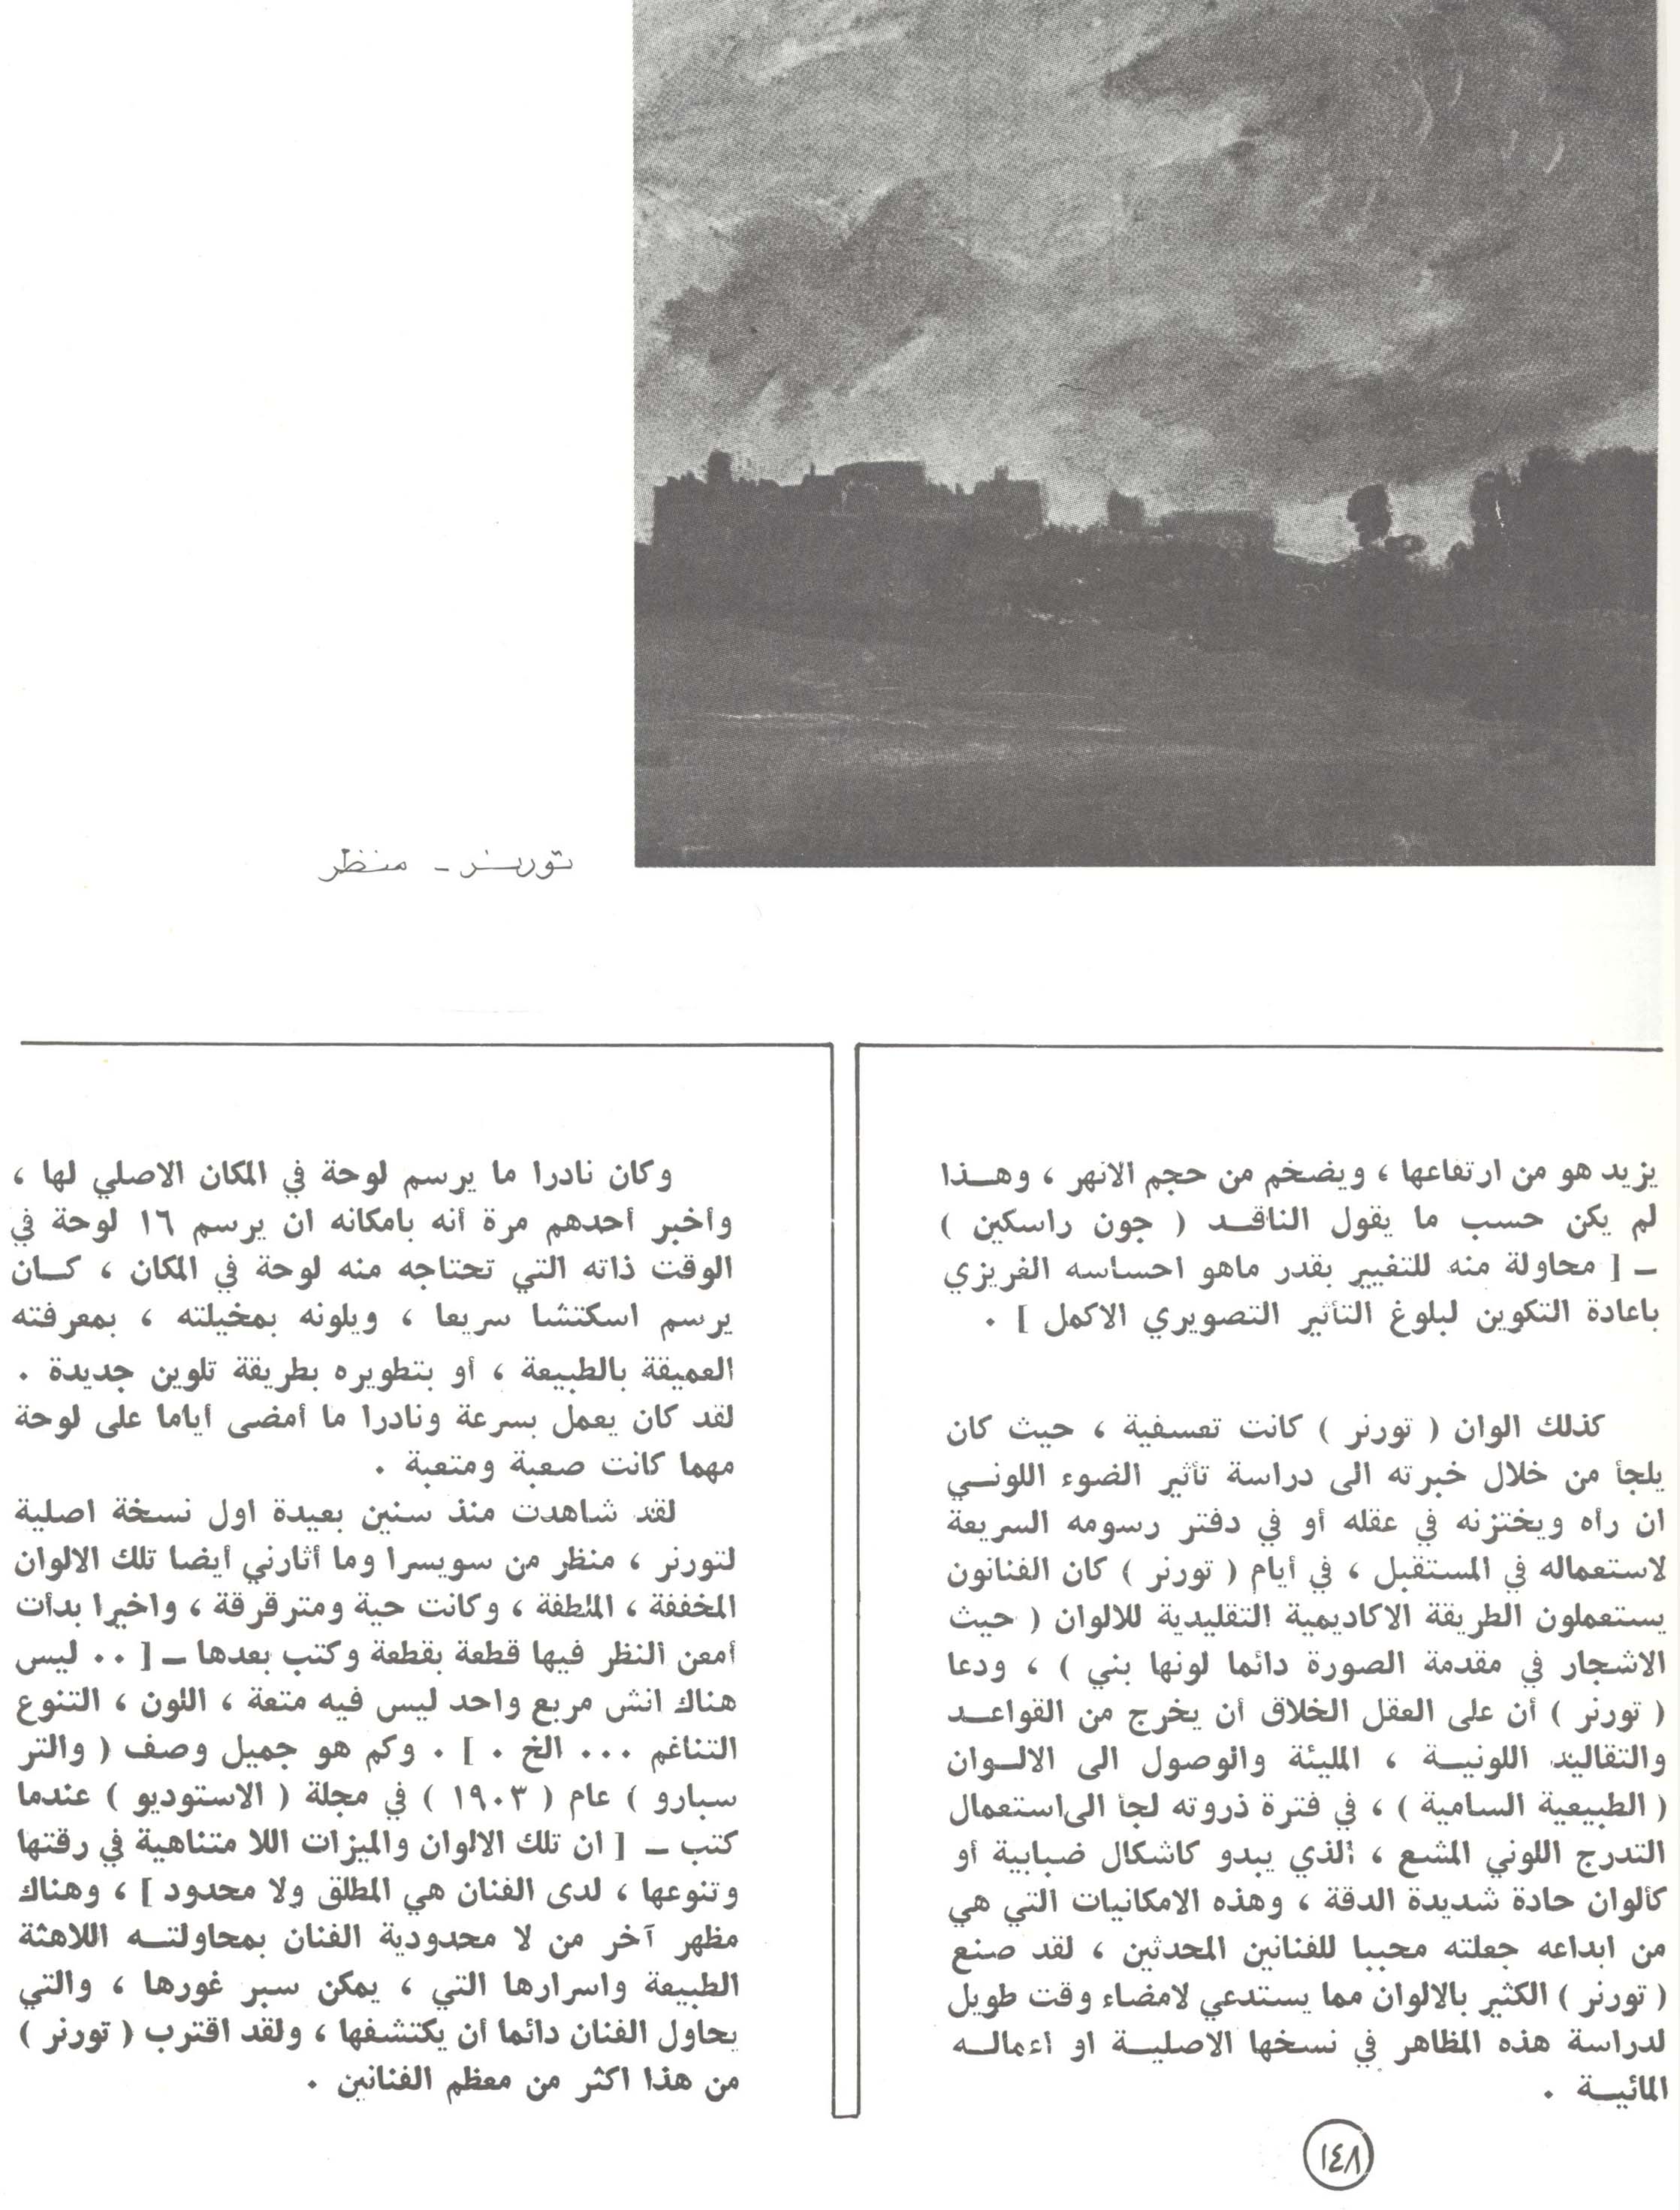 تورنر - منظر
يزيد هو من ارتفاعها ، ويضخم من حجم الانهر ، وهـذا
لم يكن حسب ما يقول الناقـد ( جون راسكين )
ـ [ محاولة منه للتغيير بقدر ماهو احساسه الغريزي
باعادة التكوين لبلوغ التأثير التصويري الاكمل ] .
كذلك الوان ( تورنر ) كانت تعسفية ، حيث كان
يلجأ من خلال خبرته الى دراسة تأثير الضوء اللونـي
ان رأه ويختزنه في عقله أو في دفتر رسومه السريعة
لاستعماله في المستقبل ، في أيام ( تورنر ) كان الفنانون
يستعملون الطريقة الاكاديمية التقليدية للالوان ( حيث
الاشجار في مقدمة الصورة دائما لونها بني ) ، ودعا
( تورنر ) أن على العقل الخلاق أن يخرج من القواعـد
والتقاليد اللونيـة ، المليئة والوصول الى الالـوان
( الطبيعية السامية ) ، في فترة ذروته لجأ الى استعمال
التدرج اللوني المشع ، الذي يبدو كاشكال ضبابية أو
كألوان حادة شديدة الدقة ، وهذه الامكانيات التي هي
من ابداعه جعلته محببا للفنانين المحدثين ، لقد صنع
( تورنر ) الكثير بالالوان مما يستدعي لامضاء وقت طويل
لدراسة هذه المظاهر في نسخها الاصليـة او اعمالـه
المائيـة .
وكان نادرا ما يرسم لوحة في المكان الاصلي لها ،
وأخبر أحدهم مرة أنه بامكانه ان يرسم ١٦ لوحة في
الوقت ذاته التي تحتاجه منه لوحة في المكان ، كـان
يرسم اسكتشا سريعا ، ويلونه بمخيلته ، بمعرفته
العميقة بالطبيعة ، أو بتطويره بطريقة تلوين جديدة .
لقد كان يعمل بسرعة ونادرا ما أمضى أياما على لوحة
مهما كانت صعبة ومتعبة .
لقد شاهدت منذ سنين بعيدة اول نسخة اصلية
لتورنر ، منظر من سويسرا وما أثارني أيضا تلك الالوان
المخففة ، الملطفة ، وكانت حية ومترقرقة ، واخيرا بدأت
أمعن النظر فيها قطعة بقطعة وكتب بعدها ـ [ .. ليس
هناك انش مربع واحد ليس فيه متعة ، اللون ، التنوع
التناغم ... الخ . ] . وكم هو جميل وصف ( والتر
سبارو ) عام ( ١٩٠٣ ) في مجلة ( الاستوديو ) عندما
كتب ـ [ ان تلك الالوان والميزات اللا متناهية في رقتها
وتنوعها ، لدى الفنان هي المطلق ولا محدود ] ، وهناك
مظهر آخر من لا محدودية الفنان بمحاولتـه اللاهثة
الطبيعة واسرارها التي ، يمكن سبر غورها ، والتي
يحاول الفنان دائما أن يكتشفها ، ولقد اقترب ( تورنر )
من هذا اكثر من معظم الفنانين .
١٤٨